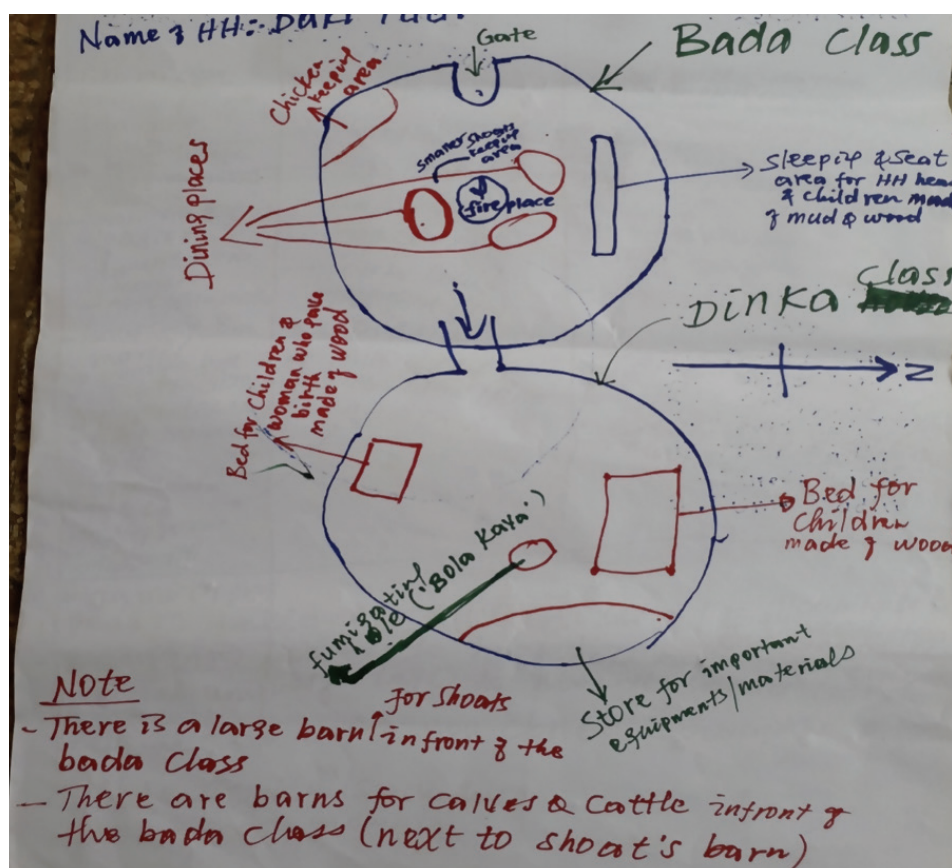 Name of HH:
Gate
Bada Class
Chicken
keeping
area
smaller shoats
keeping
area
fire place
Dining places
sleeping & seat
area for HH head
& children made
of mud & wood
Dinka class
N
Bed for Children &
woman who gave
birth
made of wood
Bed for
children
made of wood
fumigating
hole ('Bola Kaya')
Store for important
equipments/materials
NOTE
for shoats
- There is a large barn infront of the
bada class
- There are barns for calves & cattle infront of
the bada class (next to shoat's barn)